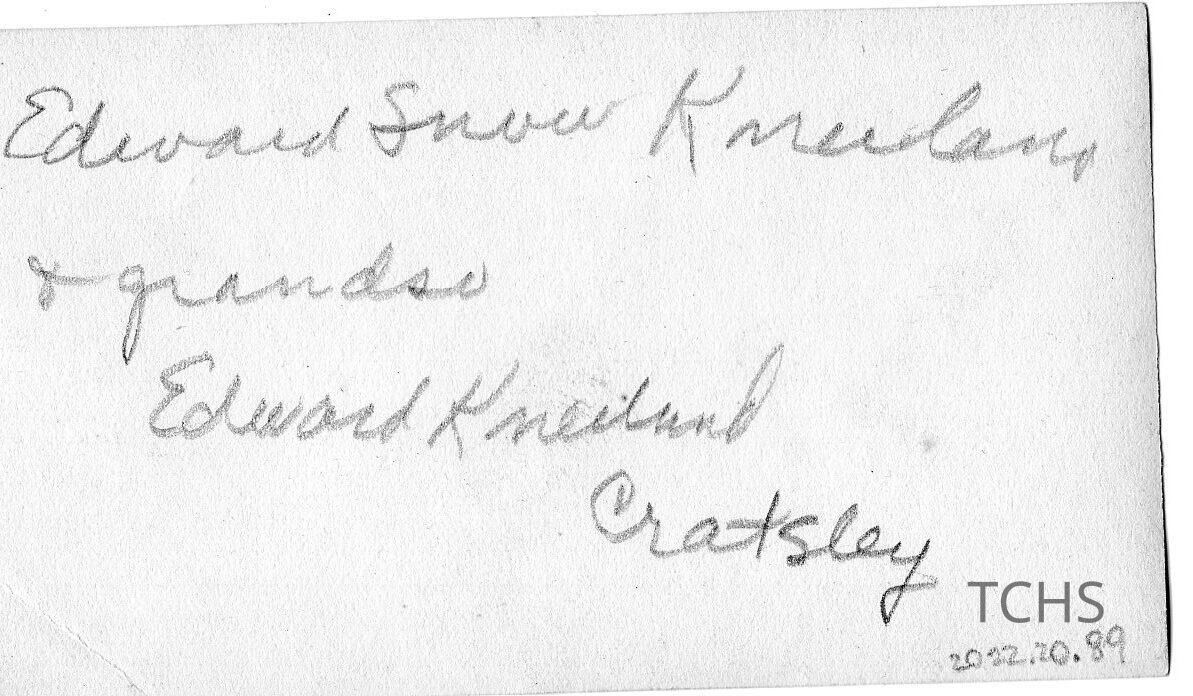 Edward Snow Kneeland
& grandso
Edward Kneeland
Cratsley
TCHS
2022.20.89